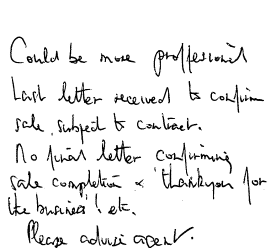 Could be more proffesional
Last letter received to confirm
sale, subject to contract.
No final letter confirming
sale completion & 'thankyou for
the business'! etc.
Please advise agent.